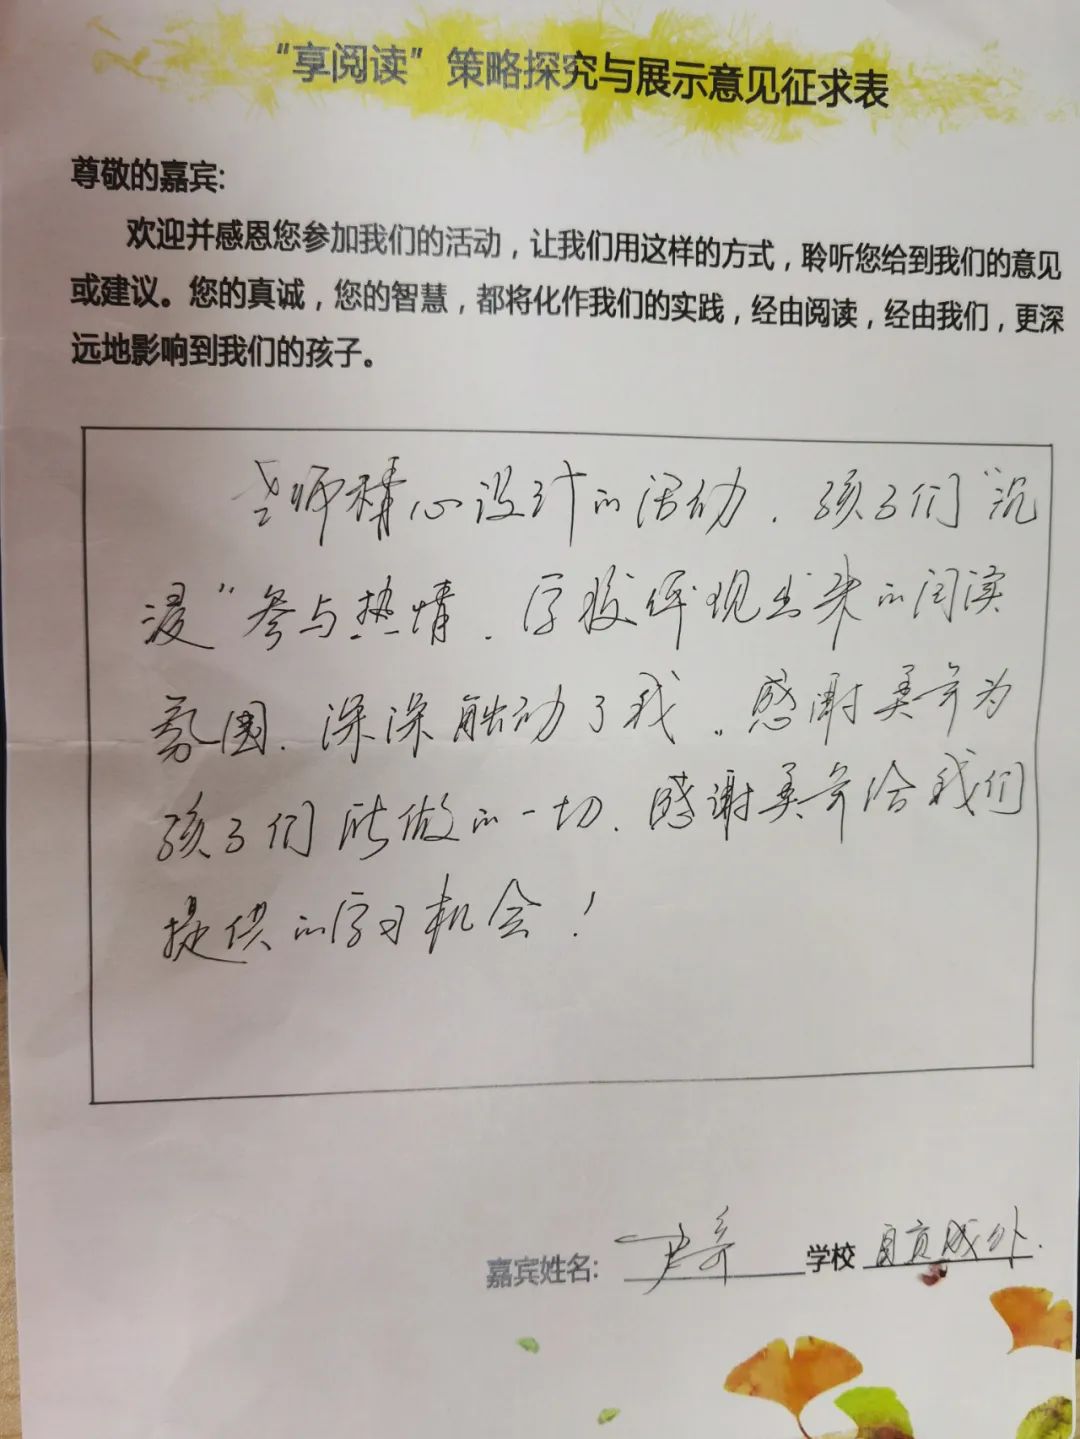 “享阅读”策略探究与展示意见征求表
尊敬的嘉宾:
欢迎并感恩您参加我们的活动，让我们用这样的方式，聆听您给到我们的意见
或建议。您的真诚，您的智慧，都将化作我们的实践，经由阅读，经由我们，更深
远地影响到我们的孩子。
老师精心设计的活动，孩子们“沉
浸”参与热情，学校体现出来的阅读
氛围，深深触动了我。感谢美年为
孩子们所做的一切，感谢美年给我们
提供的学习机会！
嘉宾姓名: 学校 自贡成外.